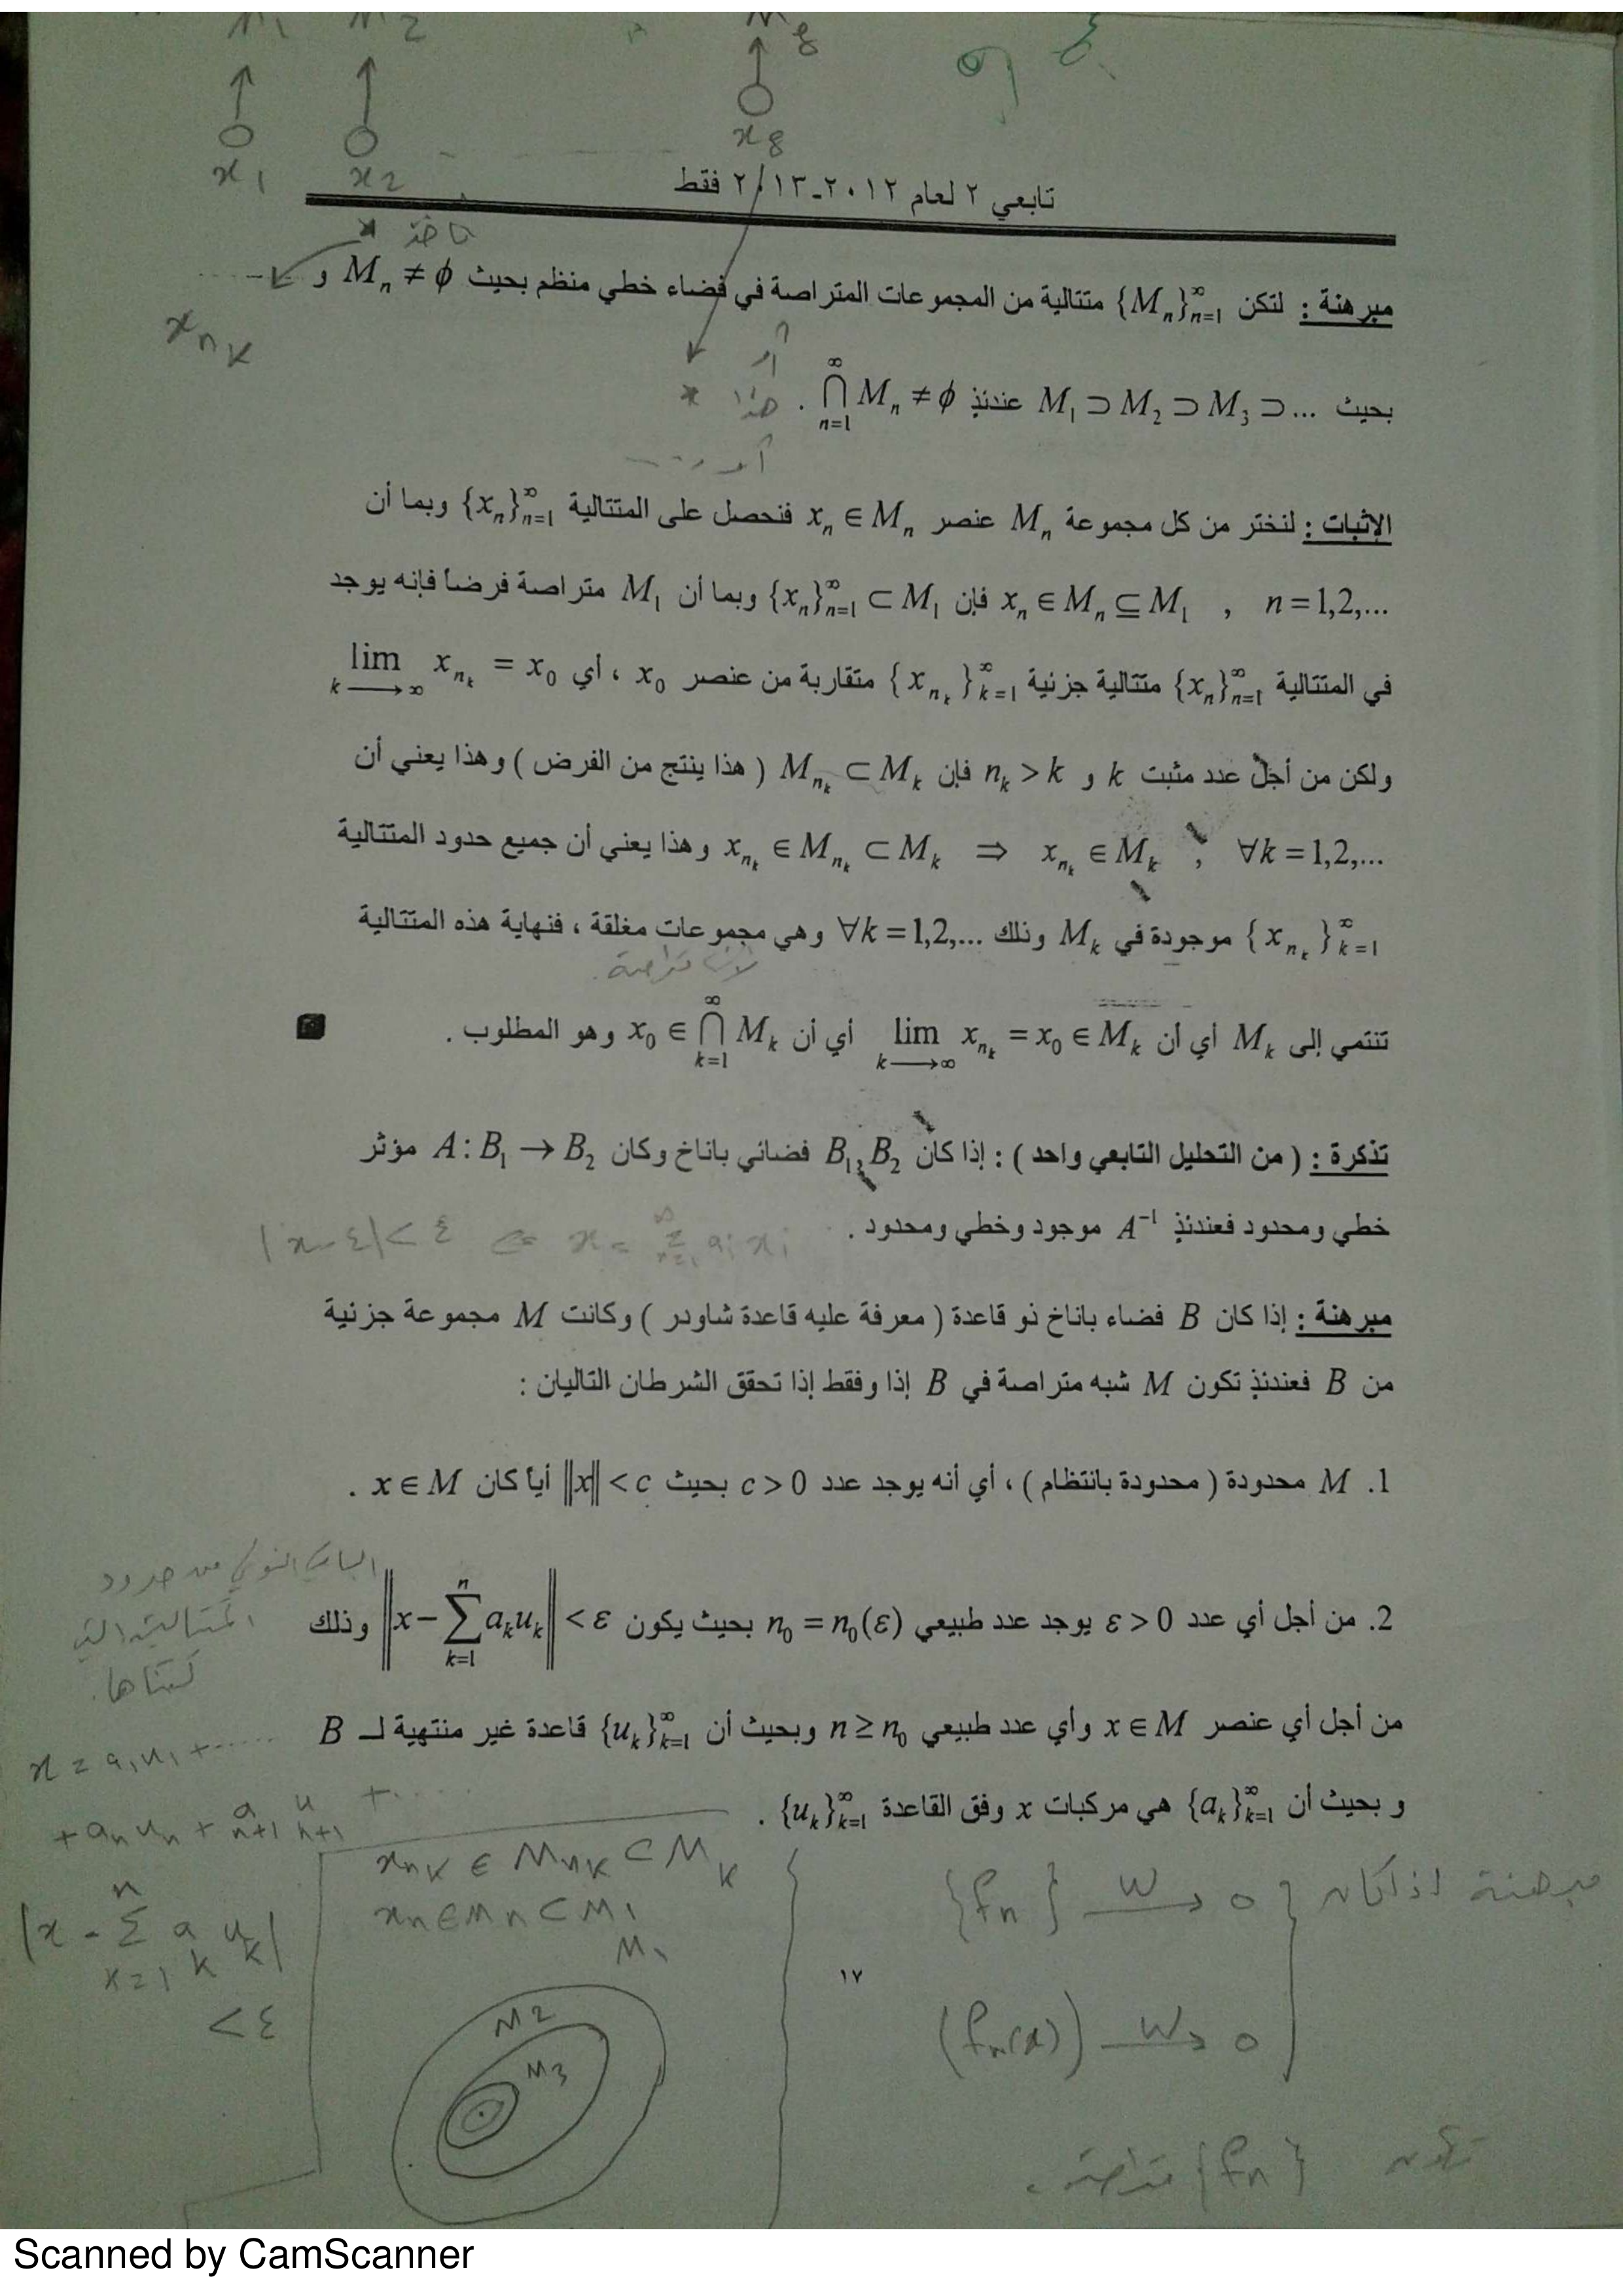 M1 M2 M8
x1 x2 x8
تابعي ٢ لعام ٢٠١٢-٢/١٣ فقط
x_{n_k}
مبرهنة : لتكن {M_n}_{n=1}^∞ متتالية من المجموعات المتراصة في فضاء خطي منظم بحيث M_n ≠ φ و
بحيث M_1 ⊃ M_2 ⊃ M_3 ⊃ ... عندئذ ⋂_{n=1}^∞ M_n ≠ φ .
الإثبات : لنختر من كل مجموعة M_n عنصر x_n ∈ M_n فنحصل على المتتالية {x_n}_{n=1}^∞ وبما أن
x_n ∈ M_n ⊆ M_1 , n = 1,2,... فإن {x_n}_{n=1}^∞ ⊂ M_1 وبما أن M_1 متراصة فرضاً فإنه يوجد
في المتتالية {x_n}_{n=1}^∞ متتالية جزئية {x_{n_k}}_{k=1}^∞ متقاربة من عنصر x_0 ، أي lim_{k→∞} x_{n_k} = x_0
ولكن من أجل عدد مثبت k و n_k > k فإن M_{n_k} ⊂ M_k ( هذا ينتج من الفرض ) وهذا يعني أن
x_{n_k} ∈ M_{n_k} ⊂ M_k ⇒ x_{n_k} ∈ M_k , ∀k = 1,2,... وهذا يعني أن جميع حدود المتتالية
{x_{n_k}}_{k=1}^∞ موجودة في M_k وذلك ∀k = 1,2,... وهي مجموعات مغلقة ، فنهاية هذه المتتالية
لأنها متراصة .
تنتمي إلى M_k أي أن lim_{k→∞} x_{n_k} = x_0 ∈ M_k أي أن x_0 ∈ ⋂_{k=1}^∞ M_k وهو المطلوب .
تذكرة : ( من التحليل التابعي واحد ) : إذا كان B_1, B_2 فضائي باناخ وكان A : B_1 → B_2 مؤثر
خطي ومحدود فعندئذٍ A^{-1} موجود وخطي ومحدود .
مبرهنة : إذا كان B فضاء باناخ ذو قاعدة ( معرفة عليه قاعدة شاودر ) وكانت M مجموعة جزئية
من B فعندئذٍ تكون M شبه متراصة في B إذا وفقط إذا تحقق الشرطان التاليان :
1. M محدودة ( محدودة بانتظام ) ، أي أنه يوجد عدد c > 0 بحيث ‖x‖ < c أياً كان x ∈ M .
2. من أجل أي عدد ε > 0 يوجد عدد طبيعي n_0 = n_0(ε) بحيث يكون ‖x − ∑_{k=1}^n a_k u_k‖ < ε وذلك
من أجل أي عنصر x ∈ M وأي عدد طبيعي n ≥ n_0 وبحيث أن {u_k}_{k=1}^∞ قاعدة غير منتهية لـ B
و بحيث أن {a_k}_{k=1}^∞ هي مركبات x وفق القاعدة {u_k}_{k=1}^∞ .
x = a_1 u_1 + ......
+ a_n u_n + a_{n+1} u_{n+1} + ....
|x − ∑_{k=1}^n a_k u_k|
< ε
x_{n_k} ∈ M_{n_k} ⊂ M_k
x_n ∈ M_n ⊂ M_1
M1
M2
M3
مبرهنة اذا كان {f_n} w→ 0
(f_n(x)) w→ 0
تكون {f_n} متراصة .
١٧
Scanned by CamScanner